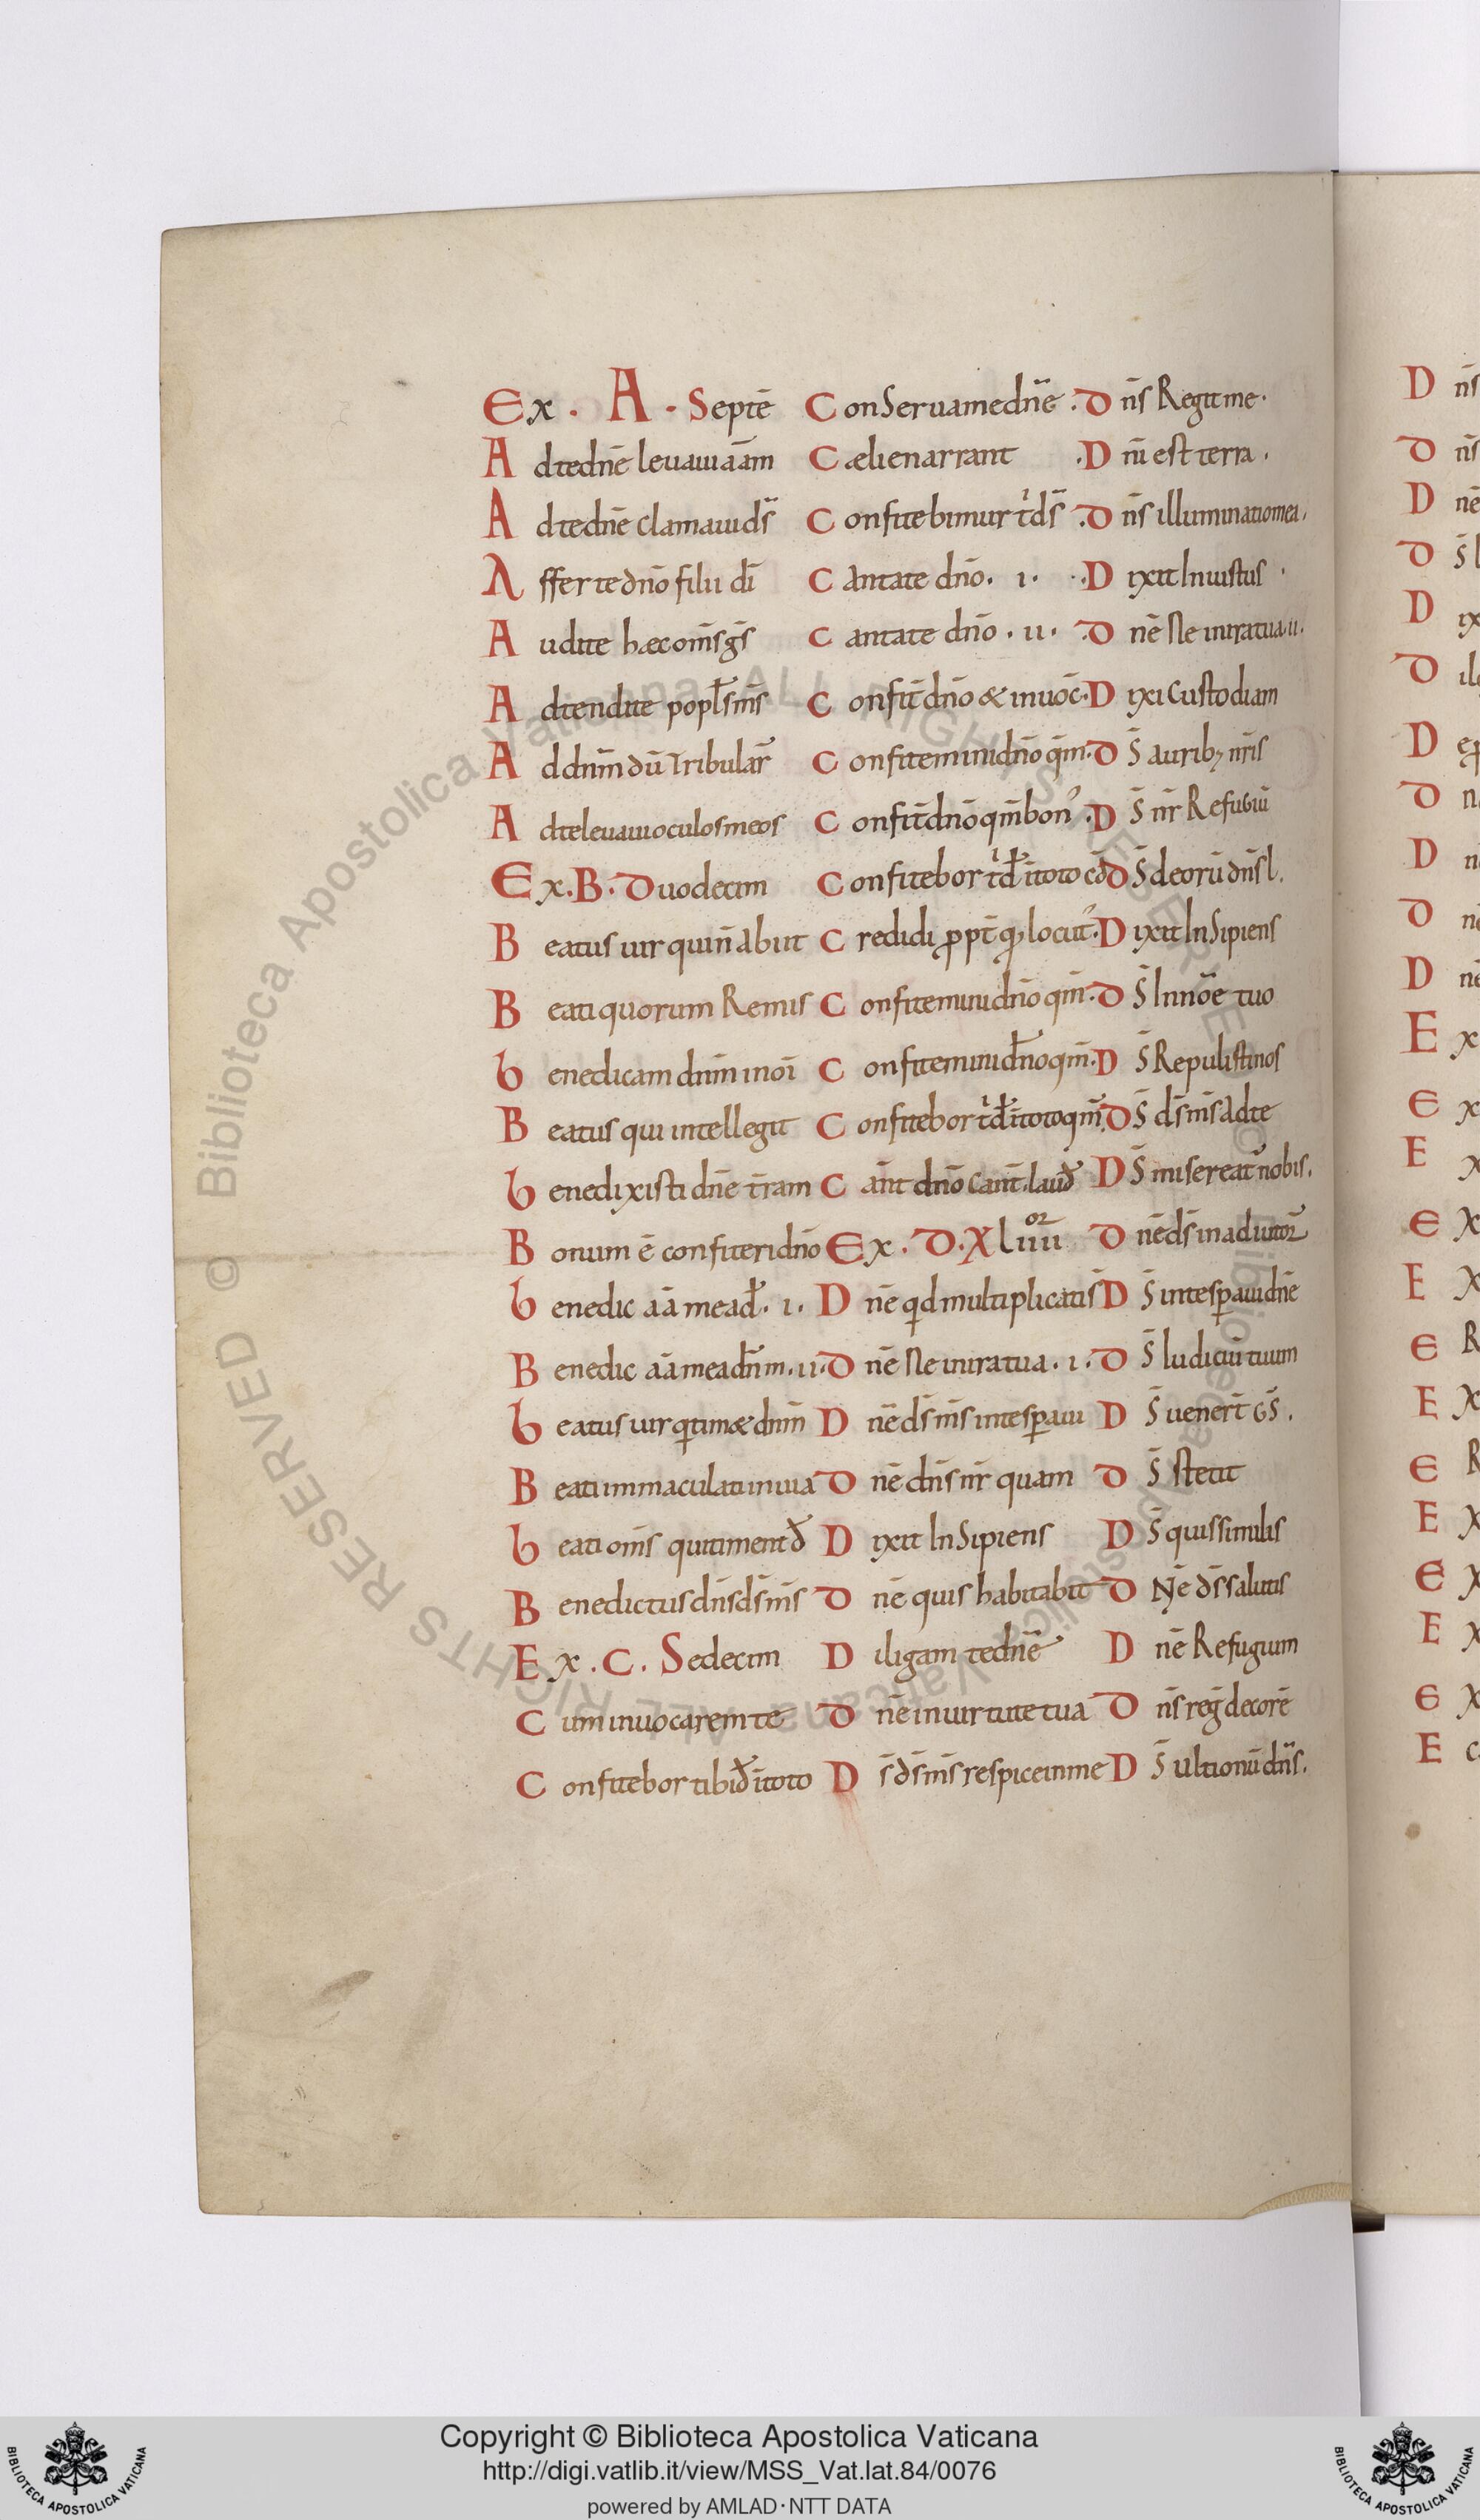 Ex · A · Septē
A dtednē leuauiaām
A dtednē clamauids̄
A fferte dnō filii dī
A udite hæcom̄sgs̄
A dtendite popl̄sm̄s
A ddnm̄ dū tribular̄
A dteleuauioculosmeos
Ex. B. Duodecim
B eatus uir quin̄abiit
B eatiquorum Remis
b enedicam dnm̄inoī
B eatus qui intellegit
b enedixisti dnē tr̄am
B onum ē confiteridnō
b enedic aā mead̄. ı.
B enedic aā meadn̄m. ıı.
b eatus uir qtimædnm̄
B eatiimmaculatiinuia
b eati om̄s quitimentd̄
B enedictusdn̄sds̄m̄s
Ex. C. Sedecim
C uminuocaremte
C onfitebortibid̄ītoto
C onSeruamednē.
C ælienarrant
C onfitebimurt̄ds̄
C antate dnō. ı.
C antate dnō. ıı.
C onfit̄dnō & inuoc̄.
C onfiteminidnōqm̄.
C onfit̄dnōqm̄bon᾿.
C onfitebort̄d̄ītoto cō
C redidi ꝓpt̄ qꝫ locut᾿.
C onfiteminidnōqm̄.
C onfiteminidnōqm̄.
C onfitebort̄d̄ītotoqm̄.
C ant̄ dnō cant̄. laud̄
Ex. D. Xlıııı or
D nē qd multiplicatis̄
D nē Ne iniratua. ı.
D nēds̄m̄sintesperaui
D nē dn̄s nr̄ quam
D ixit InSipiens
D nē quis habitabit
D iligam tednē
D nēinuirtutetua
D s̄ds̄m̄srespiceinme
D n̄s Regitme.
D nī est terra.
D n̄s illuminatiomea.
D ixit Iniustus
D nē Ne iniratua. ıı.
D ixi Custodiam
D s̄ auribꝫ nr̄is
D s̄ nr̄ Refugiū
D s̄deorū dn̄s l.
D ixit InSipiens
D s̄ Innōe tuo
D s̄ Repulistinos
D s̄ ds̄m̄sadte
D s̄ misereat̄nobis.
D nēds̄inadiutor̄
D s̄ intesperauidnē
D s̄ Iudiciūtuum
D s̄ uener̄t gs̄.
D s̄ stetit
D s̄ quissimilis
D Nē ds̄salutis
D nē Refugium
D n̄s reḡdecorē
D s̄ ultionūdn̄s.
D n̄s
D n̄s
D nē
D s̄
D ix
D
D
D
D
D
D nē
E x
E x
E x
E x
E x
E
E x
E
E x
E x
E x
E x
E
© Biblioteca Apostolica Vaticana ALL RIGHTS RESERVED
Copyright © Biblioteca Apostolica Vaticana
http://digi.vatlib.it/view/MSS_Vat.lat.84/0076
powered by AMLAD·NTT DATA
BIBLIOTECA APOSTOLICA VATICANA
BIBLIOTECA APOSTOLICA VATICANA